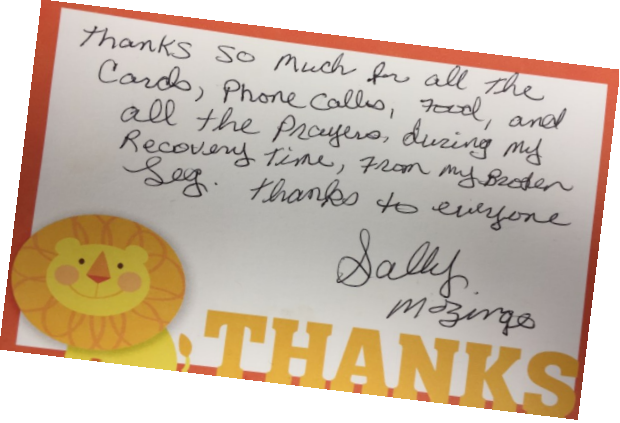 Thanks so much for all the
Cards, Phone Calls, Food, and
all the Prayers, during my
Recovery Time, From my Broken
Leg. Thanks to everyone
Sally
Mozingo
THANKS